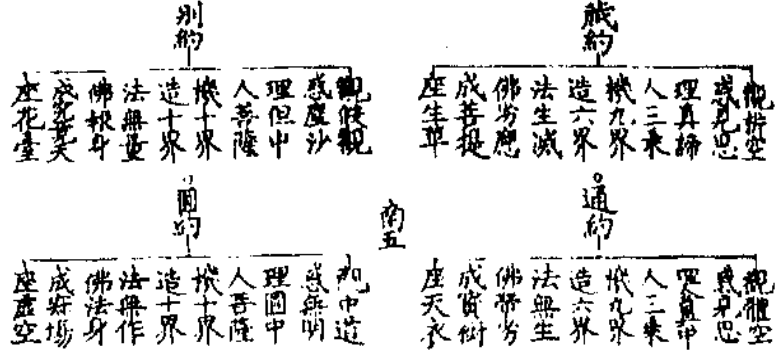 蔵約
觀析空
惑見思
理真諦
人三乘
機九界
造六界
法生滅
佛劣應
成菩提
座生草
別約
觀假觀
惑塵沙
理但中
人菩薩
機十界
造十界
法無量
佛報身
成究竟天
座花臺
通約
觀體空
惑見思
理真中
人三乘
機九界
造六界
法無生
佛勝劣
成寶樹
座天衣
南五
圓約
觀中道
惑無明
理圓中
人菩薩
機十界
造十界
法無作
佛法身
成寂場
座虛空